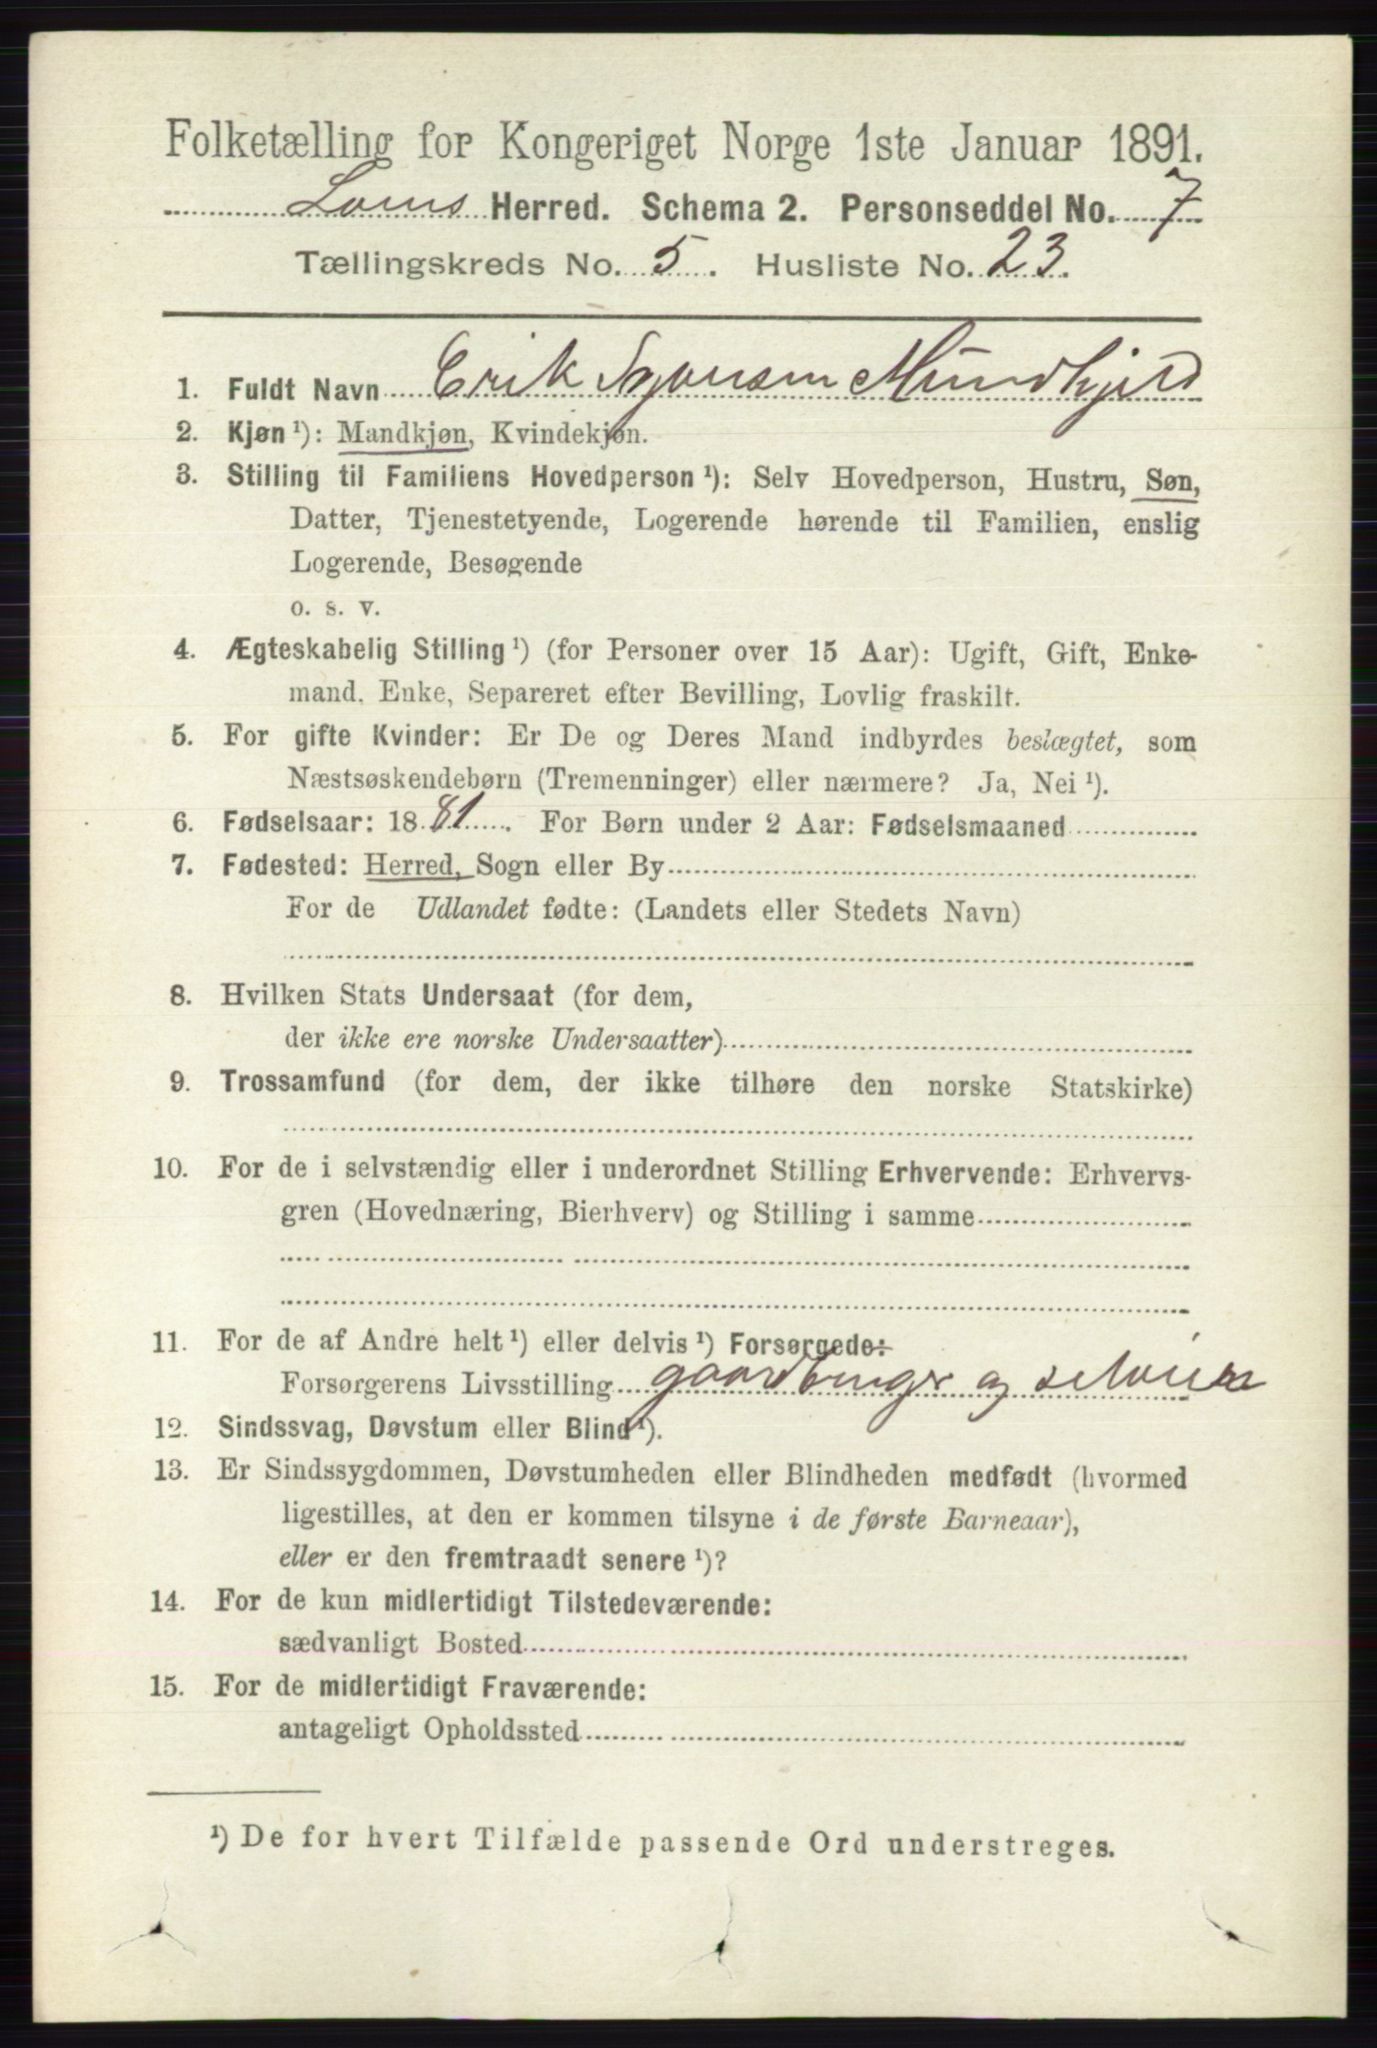 Folketælling for Kongeriget Norge 1ste Januar 1891.
Loms Herred. Schema 2. Personseddel No. 7
Tællingskreds No. 5. Husliste No. 23.
1. Fuldt Navn Erik
2. Kjøn ¹): Mandkjøn, Kvindekjøn.
3. Stilling til Familiens Hovedperson ¹): Selv Hovedperson, Hustru, Søn,
Datter, Tjenestetyende, Logerende hørende til Familien, enslig
Logerende, Besøgende
o. s. v.
4. Ægteskabelig Stilling ¹) (for Personer over 15 Aar): Ugift, Gift, Enke-
mand, Enke, Separeret efter Bevilling, Lovlig fraskilt.
5. For gifte Kvinder: Er De og Deres Mand indbyrdes beslægtet, som
Næstsøskendebørn (Tremenninger) eller nærmere? Ja, Nei ¹).
6. Fødselsaar: 1881. For Børn under 2 Aar: Fødselsmaaned
7. Fødested: Herred, Sogn eller By
For de Udlandet fødte: (Landets eller Stedets Navn)
8. Hvilken Stats Undersaat (for dem,
der ikke ere norske Undersaatter)
9. Trossamfund (for dem, der ikke tilhøre den norske Statskirke)
10. For de i selvstændig eller i underordnet Stilling Erhvervende: Erhvervs-
gren (Hovednæring, Bierhverv) og Stilling i samme
11. For de af Andre helt ¹) eller delvis ¹) Forsørgede:
Forsørgerens Livsstilling gaardbruger og selveier
12. Sindssvag, Døvstum eller Blind ¹).
13. Er Sindssygdommen, Døvstumheden eller Blindheden medfødt (hvormed
ligestilles, at den er kommen tilsyne i de første Barneaar),
eller er den fremtraadt senere ¹)?
14. For de kun midlertidigt Tilstedeværende:
sædvanligt Bosted
15. For de midlertidigt Fraværende:
antageligt Opholdssted
¹) De for hvert Tilfælde passende Ord understreges.